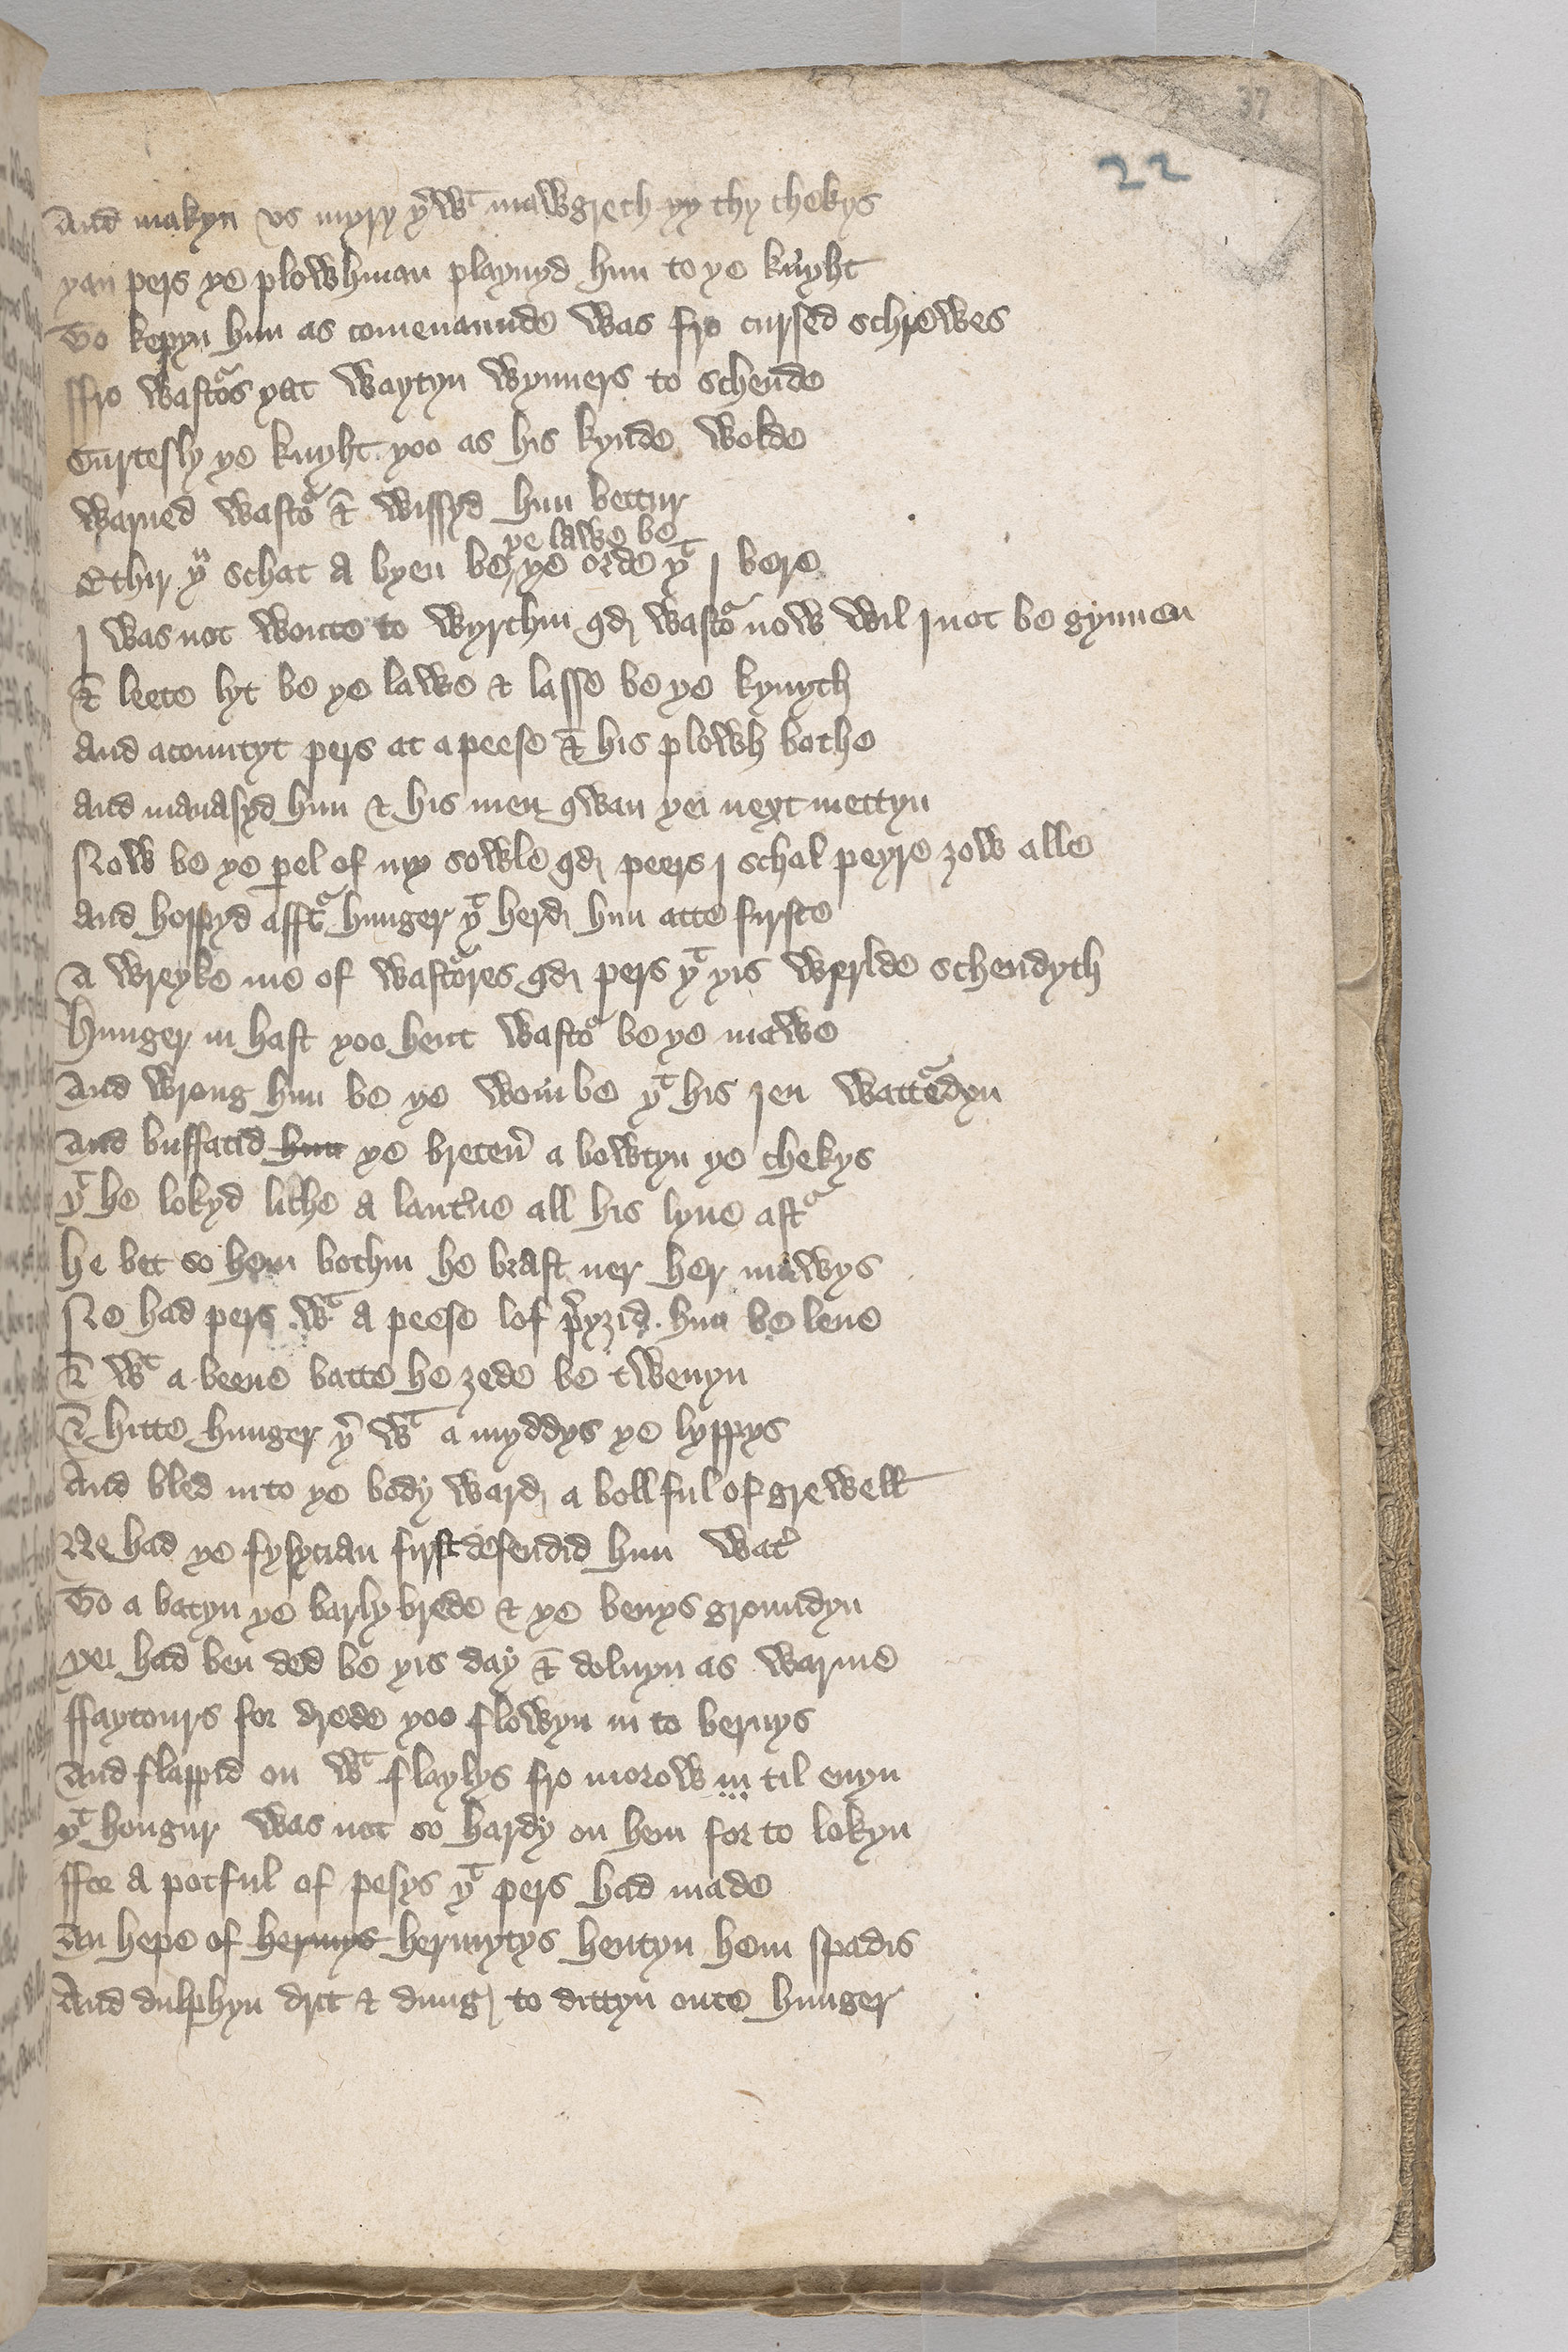 37
22
And makyn vs myry yͬ wͭ mawgreth yy thy chekys
yan pers ye plowhman playnyd hym to ye knyht
To kepyn hym as comenaunde was fro cursed schrewes
ffro wastoᵃs yat waytyn wynners to schende
Curtesly ye knyht yoo as his kynde wolde
Warned wastoᵃ & wissyd hym bettur
ye lawe be
Ethir yͧ schat A byen be ye orde yͭ I bere
I was not wonte to wyrchin qd wastoᵃ now wil I not be gynnen
& leete lyt be ye lawe & lasse be ye kynyth
And acountyt pers at a peese & his plowh bothe
And manasyd hym & his men qwan yei next mettyn
Now be ye ꝑel of my sowle qd peers I schal peyre zow alle
And hoppyd afftᵃ hunger yͭ herd hym atte firste
A wreyke me of wastoᵃres qd pers yͭ yis werlde schendyth
Hunger in hast yoo hent wastoᵃ be ye mawe
And wrong hym be ye wombe yͭ his Ien wattᵃedyn
And buffatid hym ye breten̄ a bowtyn ye chekys
yͭ he lokyd liche A lant̉ne all his lyue aftᵃ
He bet so hem bothin he brast ner her mawys
Ne had pers wͭ A peese lof p̉yzid hym be leue
& wͭ a beene batte he zede be twenyn
& hitte hunger yͬ wͭ a myddys ye lyppys
And bled into ye body ward a boll ful of grewell
Ne had ye fysycian first defendid hym wat̉
To a batyn ye barly brede & ye benys groundyn
yei had ben ded be yis day & doluyn as warme
ffaytours for drede yoo flowyn in to bernys
And flappid on wͭ flaylys fro morow in til euyn
yͭ hongur was not so hardy on hem for to lokyn
ffor A potful of pesys yͭ pers had made
An hepe of hermys hermytys hentyn hem spadis
And dulphyn drit & dung to dittyn oute hunger